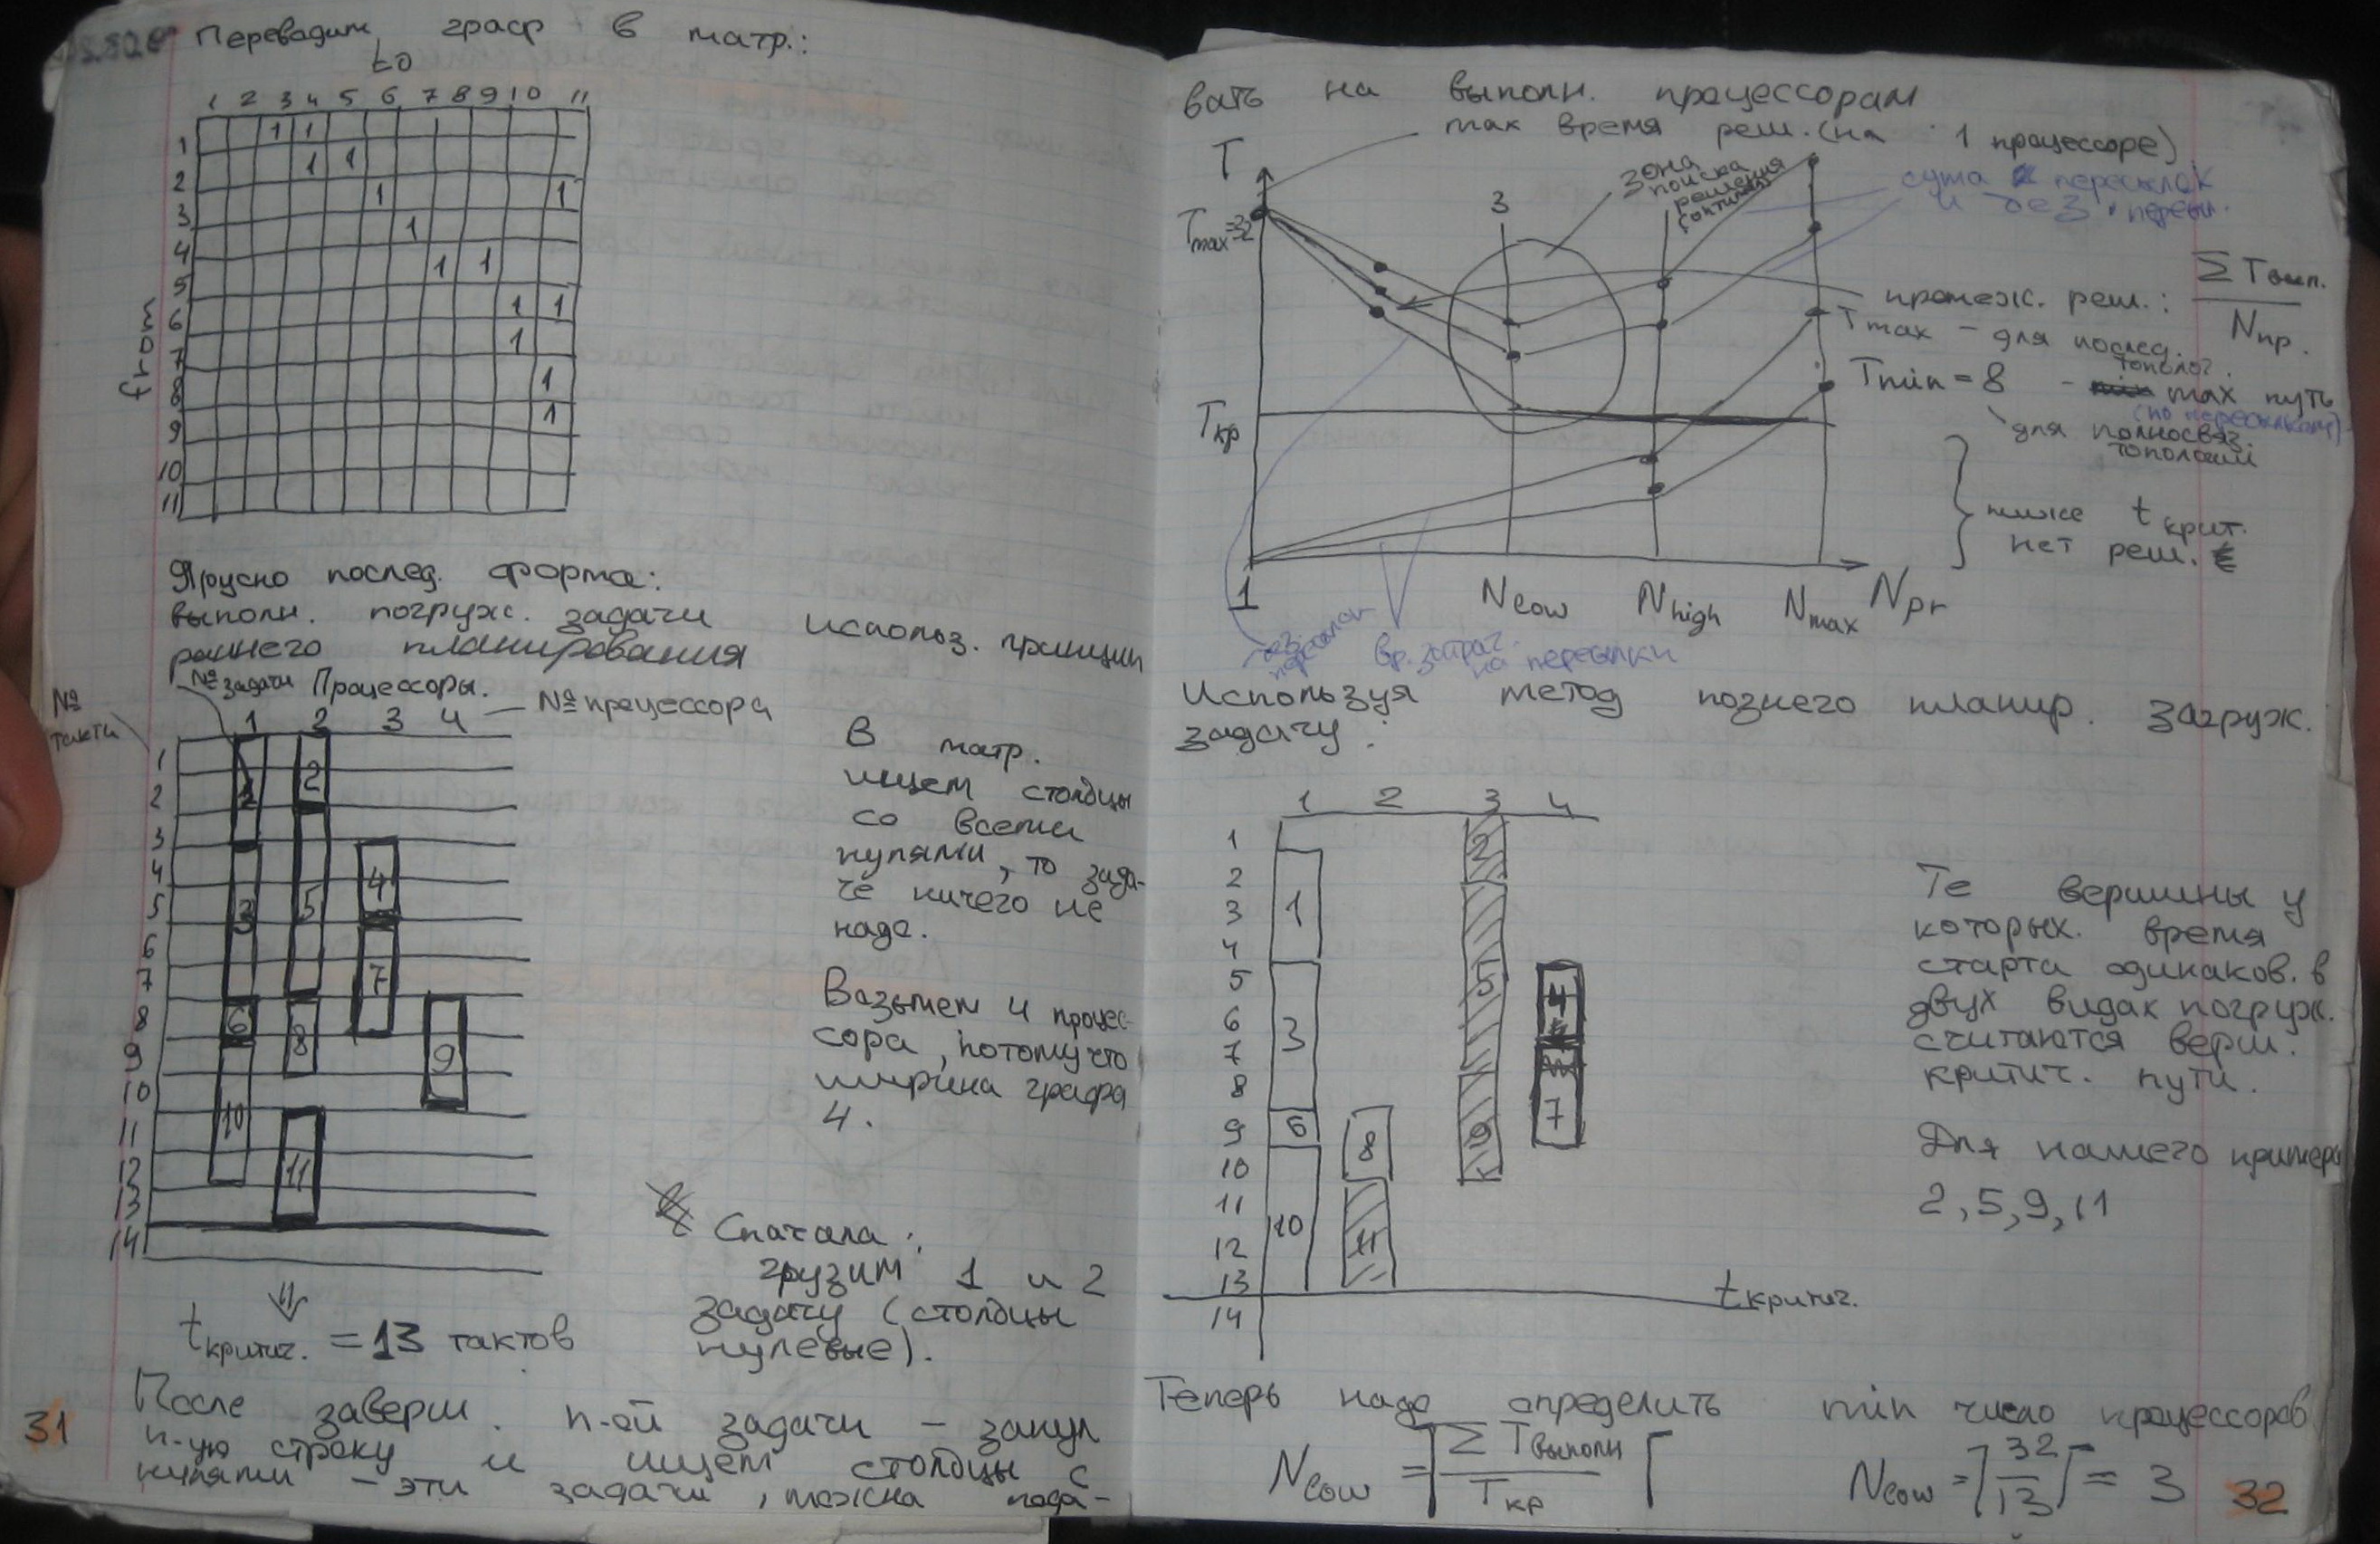 Переводим граф в матр.:
to
1 2 3 4 5 6 7 8 9 10 11
from
1 1 1
2 1 1
3 1 1
4 1
5 1 1
6 1 1
7 1
8 1
9 1
10
11
Ярусно послед. форма:
выполн. погруж. задачи использ. принцип
раннего планирования
№ задачи Процессоры.
1 2 3 4 — № процессора
№ такта
1
2
3
4
5
6
7
8
9
10
11
12
13
14
1 2
3 5 4
7
6 8 9
10 11
В матр.
ищем столбцы
со всеми
нулями, то зада-
че ничего не
надо.
Возьмем 4 процес-
сора, потому что
ширина графа
4.
Сначала:
грузим 1 и 2
задачу (столбцы
нулевые).
t критич. = 13 тактов
После заверш. n-ой задачи – занул
n-ую строку и ищем столбцы с
нулями – эти задачи, можно пода-
31
вать на выполн. процессорам
max время реш. (на 1 процессоре)
T
зона
поиска
решения
сума пересылок
и без перес.
3
Tmax=32
промеж. реш.: ΣTвып. / Nпр.
Tmax – для послед.
тополог.
Tmin = 8 – max путь
(по пересылкам)
для полносвяз.
топологии
Tкр
ниже t крит.
нет реш.
1 Nlow Nhigh Nmax Npr
без
пересылок
вр. затрач.
на пересылки
Используя метод познего планир. загруж.
задачу:
1 2 3 4
1
2
3
4
5
6
7
8
9
10
11
12
13
14
2
1
3 5 4
7
6 8 9
10 11
t критич.
Те вершины у
которых время
старта одинаков. в
двух видах погруж.
считаются верш.
критич. пути.
Для нашего примера
2, 5, 9, 11
Теперь надо определить min число процессоров
Nlow = ⌉ΣTвыполн / Tкр⌈ Nlow = ⌉32 / 13⌈ = 3
32